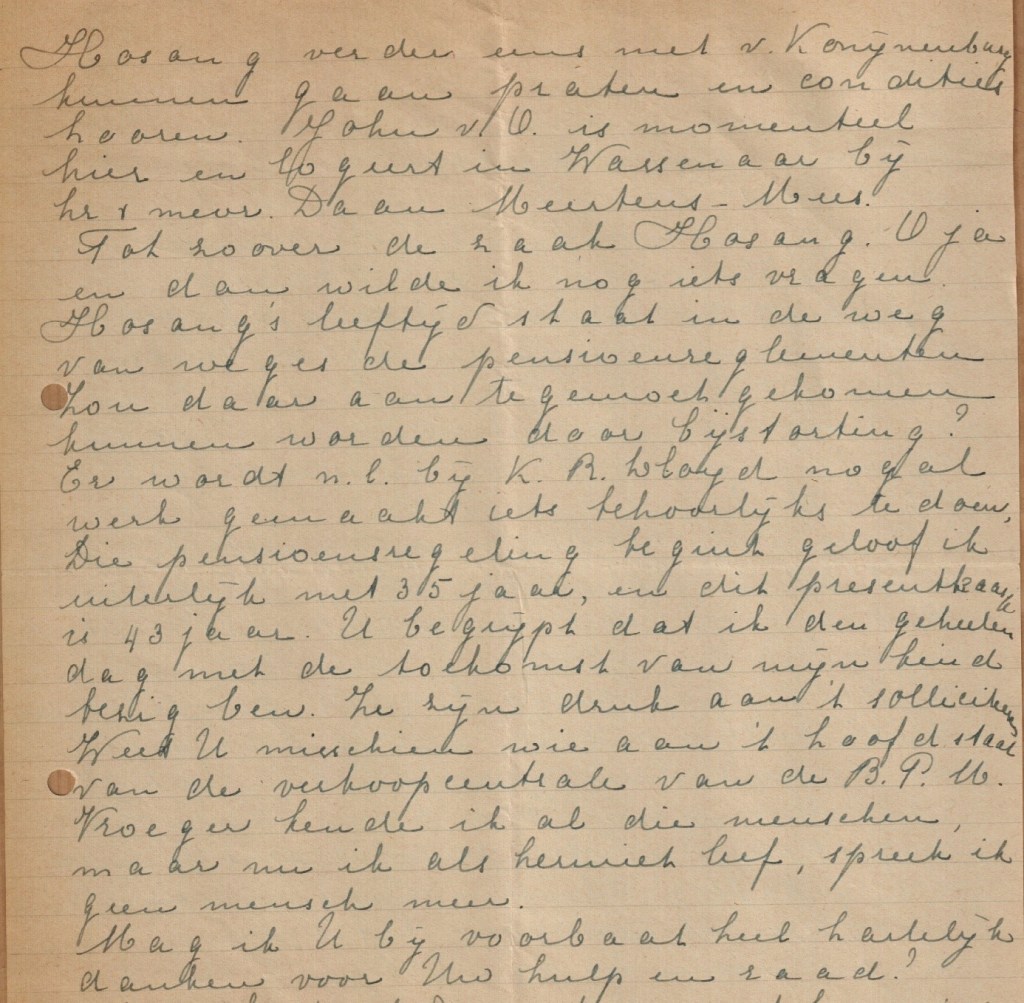 Hosang verder eens met v. Konijnenburg
kunnen gaan praten en condities
hooren. John v. O. is momenteel
hier en logeert in Wassenaar bij
hr & mevr. Daan Meertens - Mees.
Tot zoover de zaak Hosang. O ja
en dan wilde ik nog iets vragen.
Hosang's leeftijd staat in de weg
van weges de pensioenreglementen
Zou daar aan tegemoet gekomen
kunnen worden door bijstorting?
Er wordt n.l. bij K. R. Lloyd nogal
werk gemaakt iets behoorlijks te doen,
Die pensioensregeling begint geloof ik
uiterlijk met 35 jaar, en dit
is 43 jaar. U begrijpt dat ik den geheelen
dag met de toekomst van mijn kind
bezig ben. Ze zijn druk aan 't solliciteren
Weet U misschien wie aan 't hoofd staat
van de verkoopcentrale van de B. P. M.
Vroeger kende ik al die menschen,
maar nu ik als hermiet leef, spreek ik
geen mensch meer.
Mag ik U bij voorbaat heel hartelijk
danken voor Uw hulp en raad?